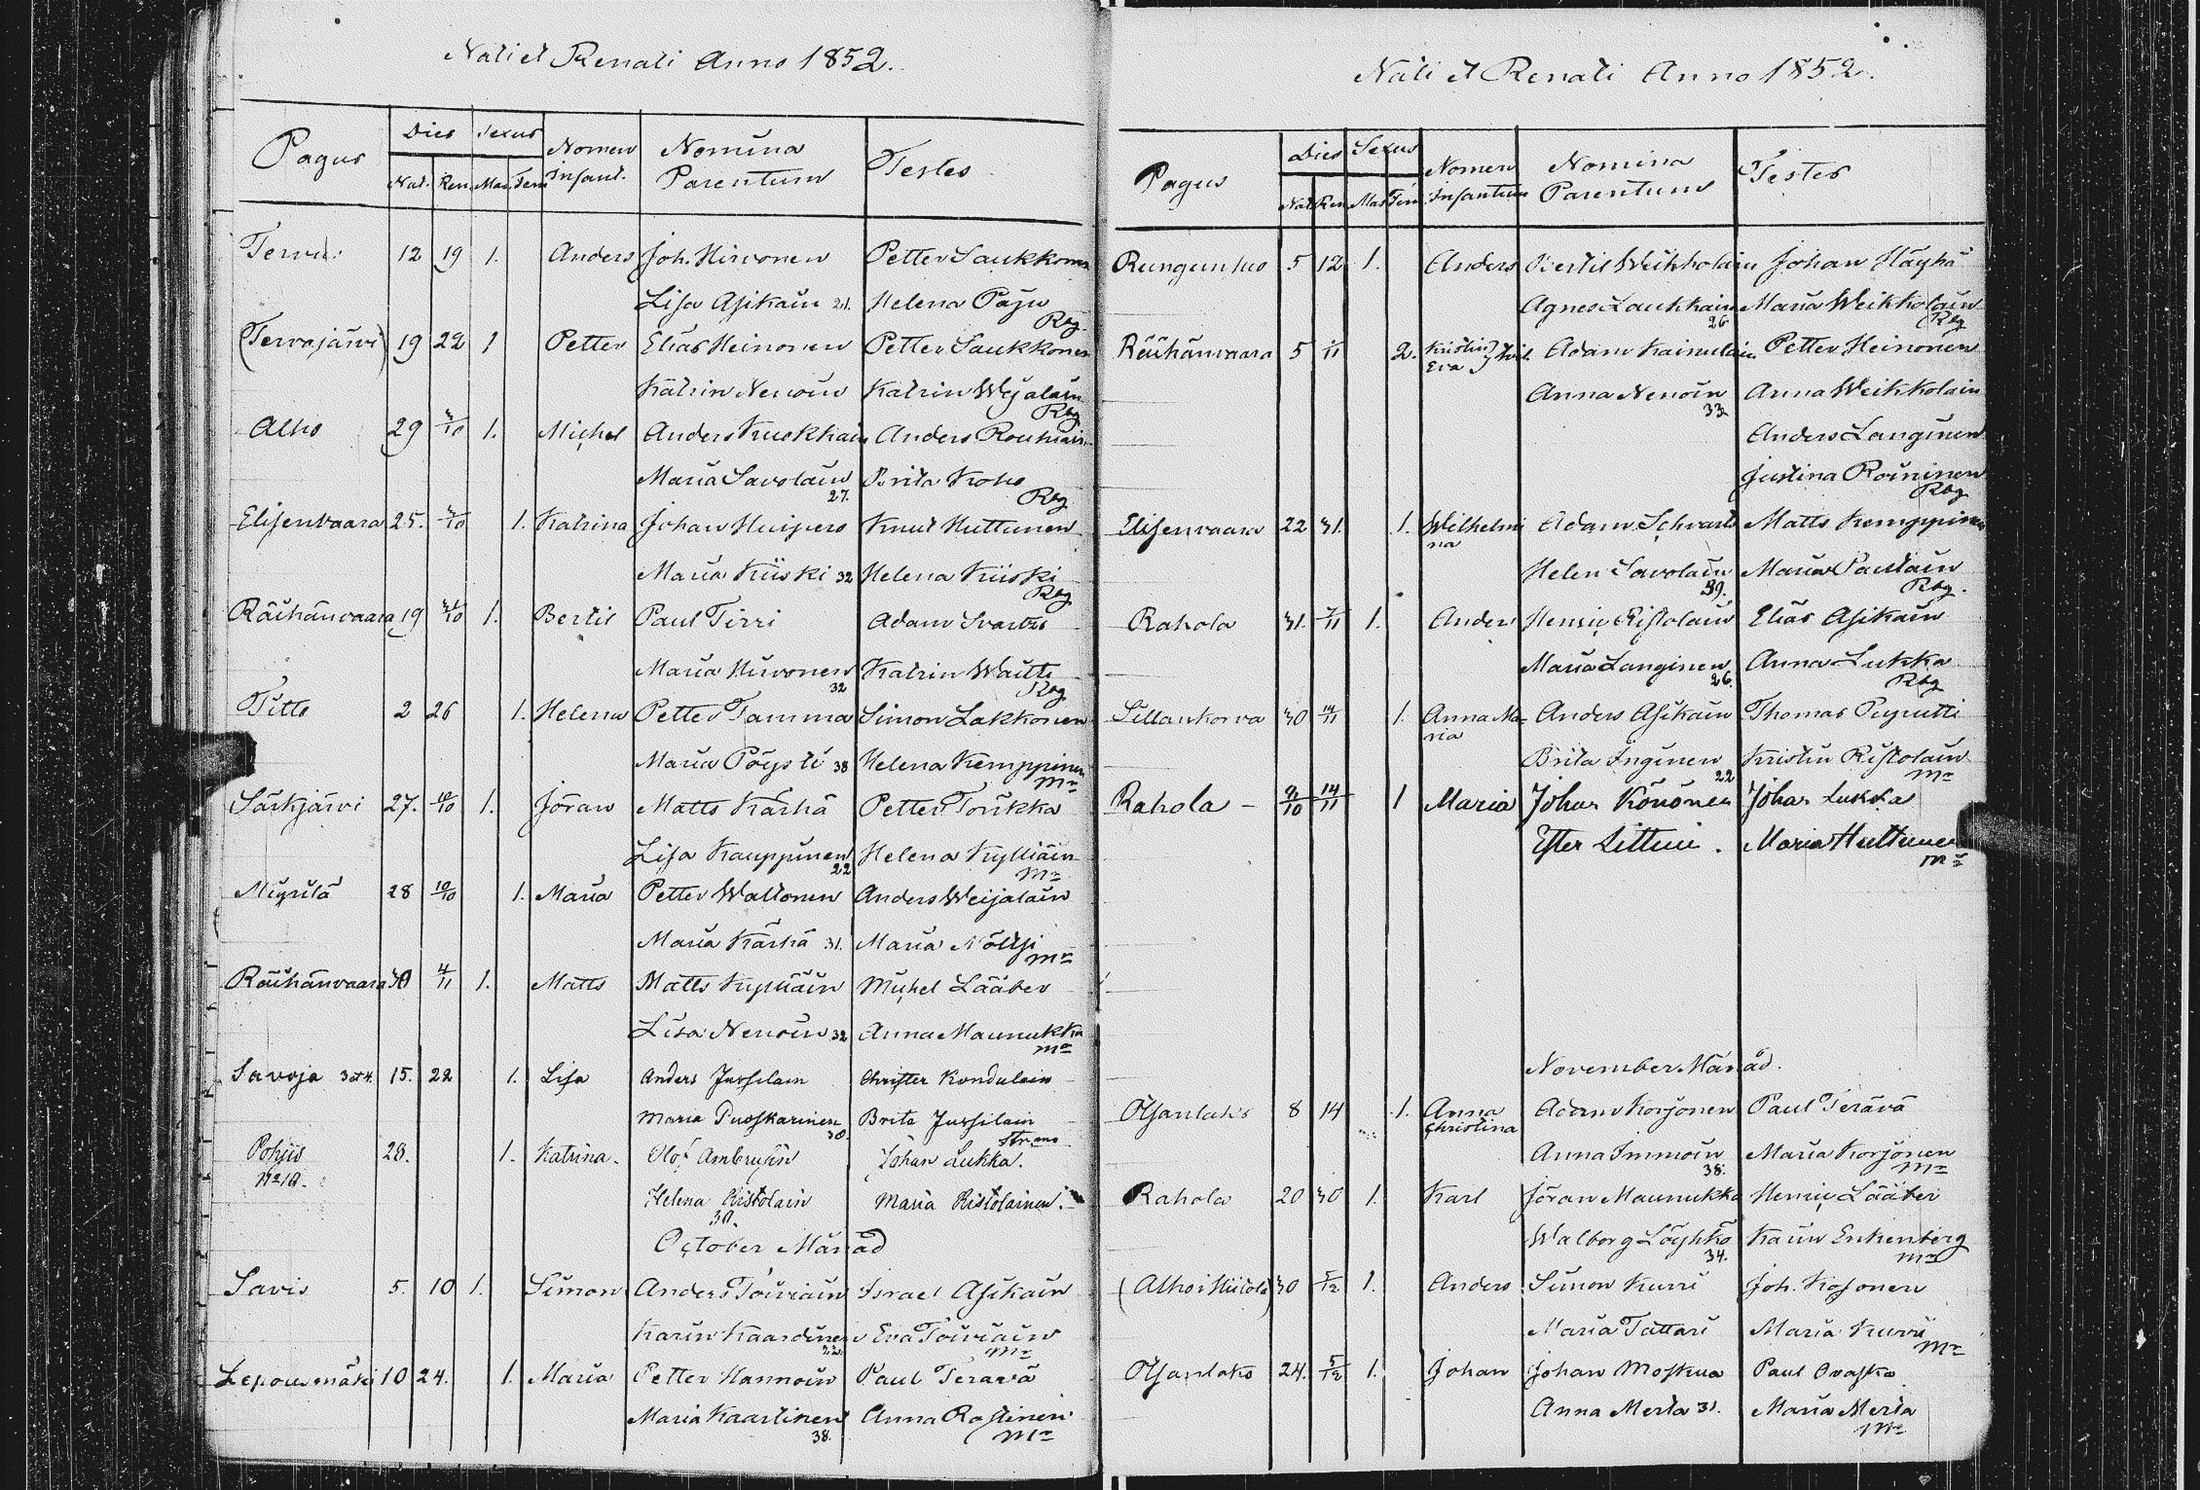 Nati et Renati Anno 1852.
Pagus Dies Sexus Nomen Infant. Nomina Parentum Testes
Nat. Ren. Mas. Fem.
Tervu 12 19 1. Anders Joh. Hirvonen Petter Saukkonen
Lisa Asikain 21. Helena Paju
Rbg.
(Tervajärvi) 19 22 1 Petter Elias Heinonen Petter Saukkonen
Katrin Nenoin Katrin Wejalain
Rbg
Alho 29 3/10 1. Michel Anders Kuokkain Anders Rouhiain
Maria Savolain 27. Brita Koho
Rbg
Elisenvaara 25. 3/10 1. Katrina Johan Huipero Knut Huttunen
Maria Kiiski 32 Helena Kiiski
Rbg
Räihänvaara 19 1. Bertil Paul Tirri Adam Svartz
Maria Hirvonen 32 Katrin Waitti
Rbg
Titto 2 26 1. Helena Petter Tamma Simon Lakkonen
Maria Pöysti 38 Helena Kemppinen
Mn
Särkjärvi 27. 10/10 1. Jöran Matts Kärhä Petter Torikka
Lisa Kauppinen 22 Helena Kylliäin
Mn
28 10/10 1. Maria Petter Waltonen Anders Weijalain
Maria Kärhä 31. Maria Nöltsi
Mn
Räihänvaara 30 4/11 1. Matts Matts Kylliäin Michel Lääber
Lisa Nenoin 32 Anna Maunukka
Mn
Savoja 3 et 4. 15. 22 1. Lisa Anders Jussilain Christer Kondulain
Maria Puoskarinen 30. Brita Jussilain
Pohjis 28. 1. Katrina Olof Ambrusin Johan Lukka.
No 18. Helena Ristolain 30. Maria Ristolainen.
October Månad
Savis 5. 10 1. Simon Anders Toiviain Israel Asikain
Karin Kaardinen 22. Eva Toiviain
Mn
Lepousmäki 10 24. 1. Maria Petter Hannoin Paul Terävä
Maria Kaartinen 38. Anna Rastinen
Mn
Nati et Renati Anno 1852.
Pagus Dies Sexus Nomen Infantum Nomina Parentum Testes
Nat Ren Mas Fem
Rungunkio 5 12 1. Anders Bertil Weikkolain Johan Häyhä
Agnes Laukkain 26 Maria Weikkolain
Rbg
Räihänvaara 5 2. Kristin Eva Adam Kaimulain Petter Heinonen
Anna Nenoin 33. Anna Weikkolain
Anders Langinen
Justina Roininen
Rbg
Elisenvaara 22 31. 1. Wilhelmina Adam Schvarts Matts Kemppinen
Helen Savolain 39. Maria Pautain
Rbg.
Rahola 31. 7/11 1. Anders Henric Ristolain Elias Asikain
Maria Langinen 26. Anna Lukka
Rbg
Sillankorva 30 14/11 1. Anna Maria Anders Asikain Thomas Pyrutti
Brita Inginen 22 Kristin Ristolain
Mn
Rahola – 14/11 1 Maria Johan Könönen Johan Lukka
Ester Litturi. Maria Huttunen
Mn
November Månad.
Otsanlaks 8 14 1. Anna Christina Adam Korjonen Paul Terävä
Anna Immoin 38. Maria Korjonen
Mn
Rahola 20 30 1. Karl Jöran Maunukka Henric Lääberi
Walborg Löyhkö 34. Karin Enkenberg
Mn
(Alhoi Hiitola) 30 5/12 1. Anders Simon Kurri Joh. Kojonen
Maria Tattari Maria Kurri
Mn
Otsanlaks 24. 5/12 1. Johan Johan Moskua Paul Ovaska
Anna Merta 31. Maria Merta
Mn